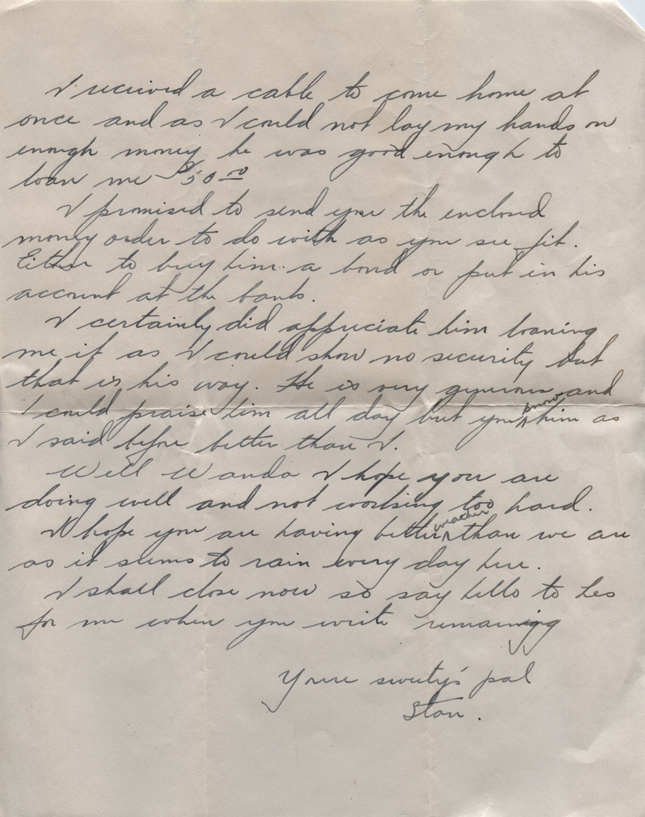 I received a cable to come home at
once and as I could not lay my hands on
enough money he was good enough to
loan me $50.00
I promised to send you the enclosed
money order to do with as you see fit.
Either to buy him a bond or put in his
account at the bank.
I certainly did appreciate him loaning
me it as I could show no security but
that is his way. He is very generous and
I could praise him all day but you know him as
I said before better than I.
Well Wanda I hope you are
doing well and not working too hard.
I hope you are having better weather than we are
as it seems to rain every day here.
I shall close now so say hello to Les
for me when you write remaining
Your sweety's pal
Stan.